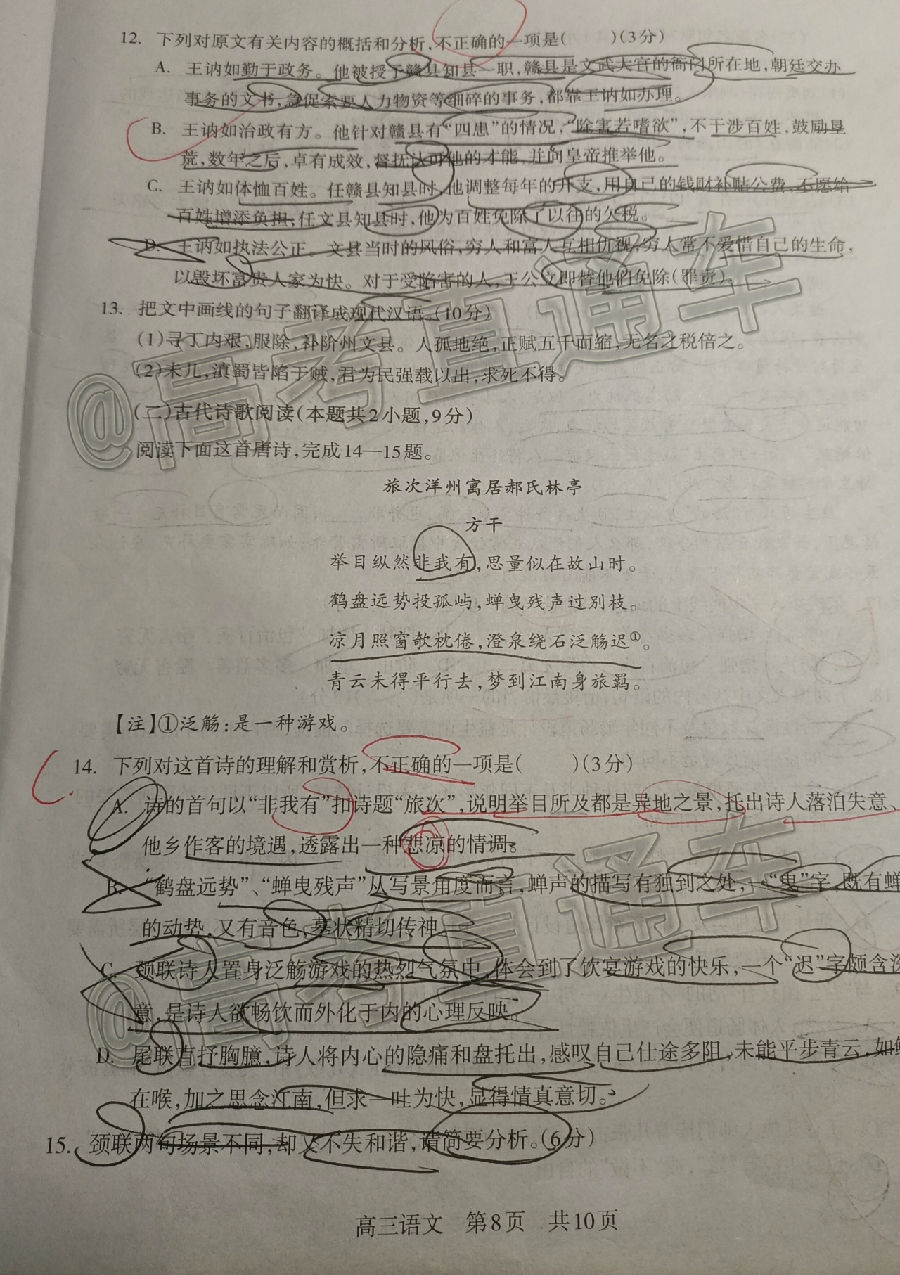 12. 下列对原文有关内容的概括和分析,不正确的一项是(　　)(3分)
A. 王讷如勤于政务。他被授予赣县知县一职,赣县是文武大官的衙门所在地,朝廷交办
事务的文书,急促索要人力物资等细碎的事务,都靠王讷如办理。
B. 王讷如治政有方。他针对赣县有“四患”的情况,“除害若嗜欲”,不干涉百姓,鼓励垦
荒,数年之后,卓有成效,督抚认可他的才能,并向皇帝推举他。
C. 王讷如体恤百姓。任赣县知县时,他调整每年的开支,用自己的钱财补贴公费,不愿给
百姓增添负担,任文县知县时,他为百姓免除了以往的欠税。
D. 王讷如执法公正。文县当时的风俗,穷人和富人互相仇视,穷人常不爱惜自己的生命,
以毁坏富贵人家为快。对于受陷害的人,王公立即替他们免除(罪责)。
13. 把文中画线的句子翻译成现代汉语。(10分)
(1)寻丁内艰,服除,补阶州文县。人孤地绝,正赋五千而缩,无名之税倍之。
(2)未几,滇蜀皆陷于贼,君为民强载以出,求死不得。
(二)古代诗歌阅读(本题共2小题,9分)
阅读下面这首唐诗,完成14—15题。
旅次洋州寓居郝氏林亭
方干
举目纵然非我有,思量似在故山时。
鹤盘远势投孤屿,蝉曳残声过别枝。
凉月照窗欹枕倦,澄泉绕石泛觞迟①。
青云未得平行去,梦到江南身旅羁。
【注】①泛觞:是一种游戏。
14. 下列对这首诗的理解和赏析,不正确的一项是(　　)(3分)
A. 诗的首句以“非我有”扣诗题“旅次”,说明举目所及都是异地之景,托出诗人落泊失意、
他乡作客的境遇,透露出一种悲凉的情调。
B. “鹤盘远势”、“蝉曳残声”从写景角度而言,蝉声的描写有独到之处,一“曳”字,既有蝉
的动势,又有音色,摹状精切传神。
C. 颈联诗人置身泛觞游戏的热烈气氛中,体会到了饮宴游戏的快乐,一个“迟”字颇含深
意,是诗人欲畅饮而外化于内的心理反映。
D. 尾联直抒胸臆,诗人将内心的隐痛和盘托出,感叹自己仕途多阻,未能平步青云,如鲠
在喉,加之思念江南,但求一吐为快,显得情真意切。
15. 颈联两句场景不同,却又不失和谐,请简要分析。(6分)
高三语文　第8页　共10页
@高考直通车
@高考直通车